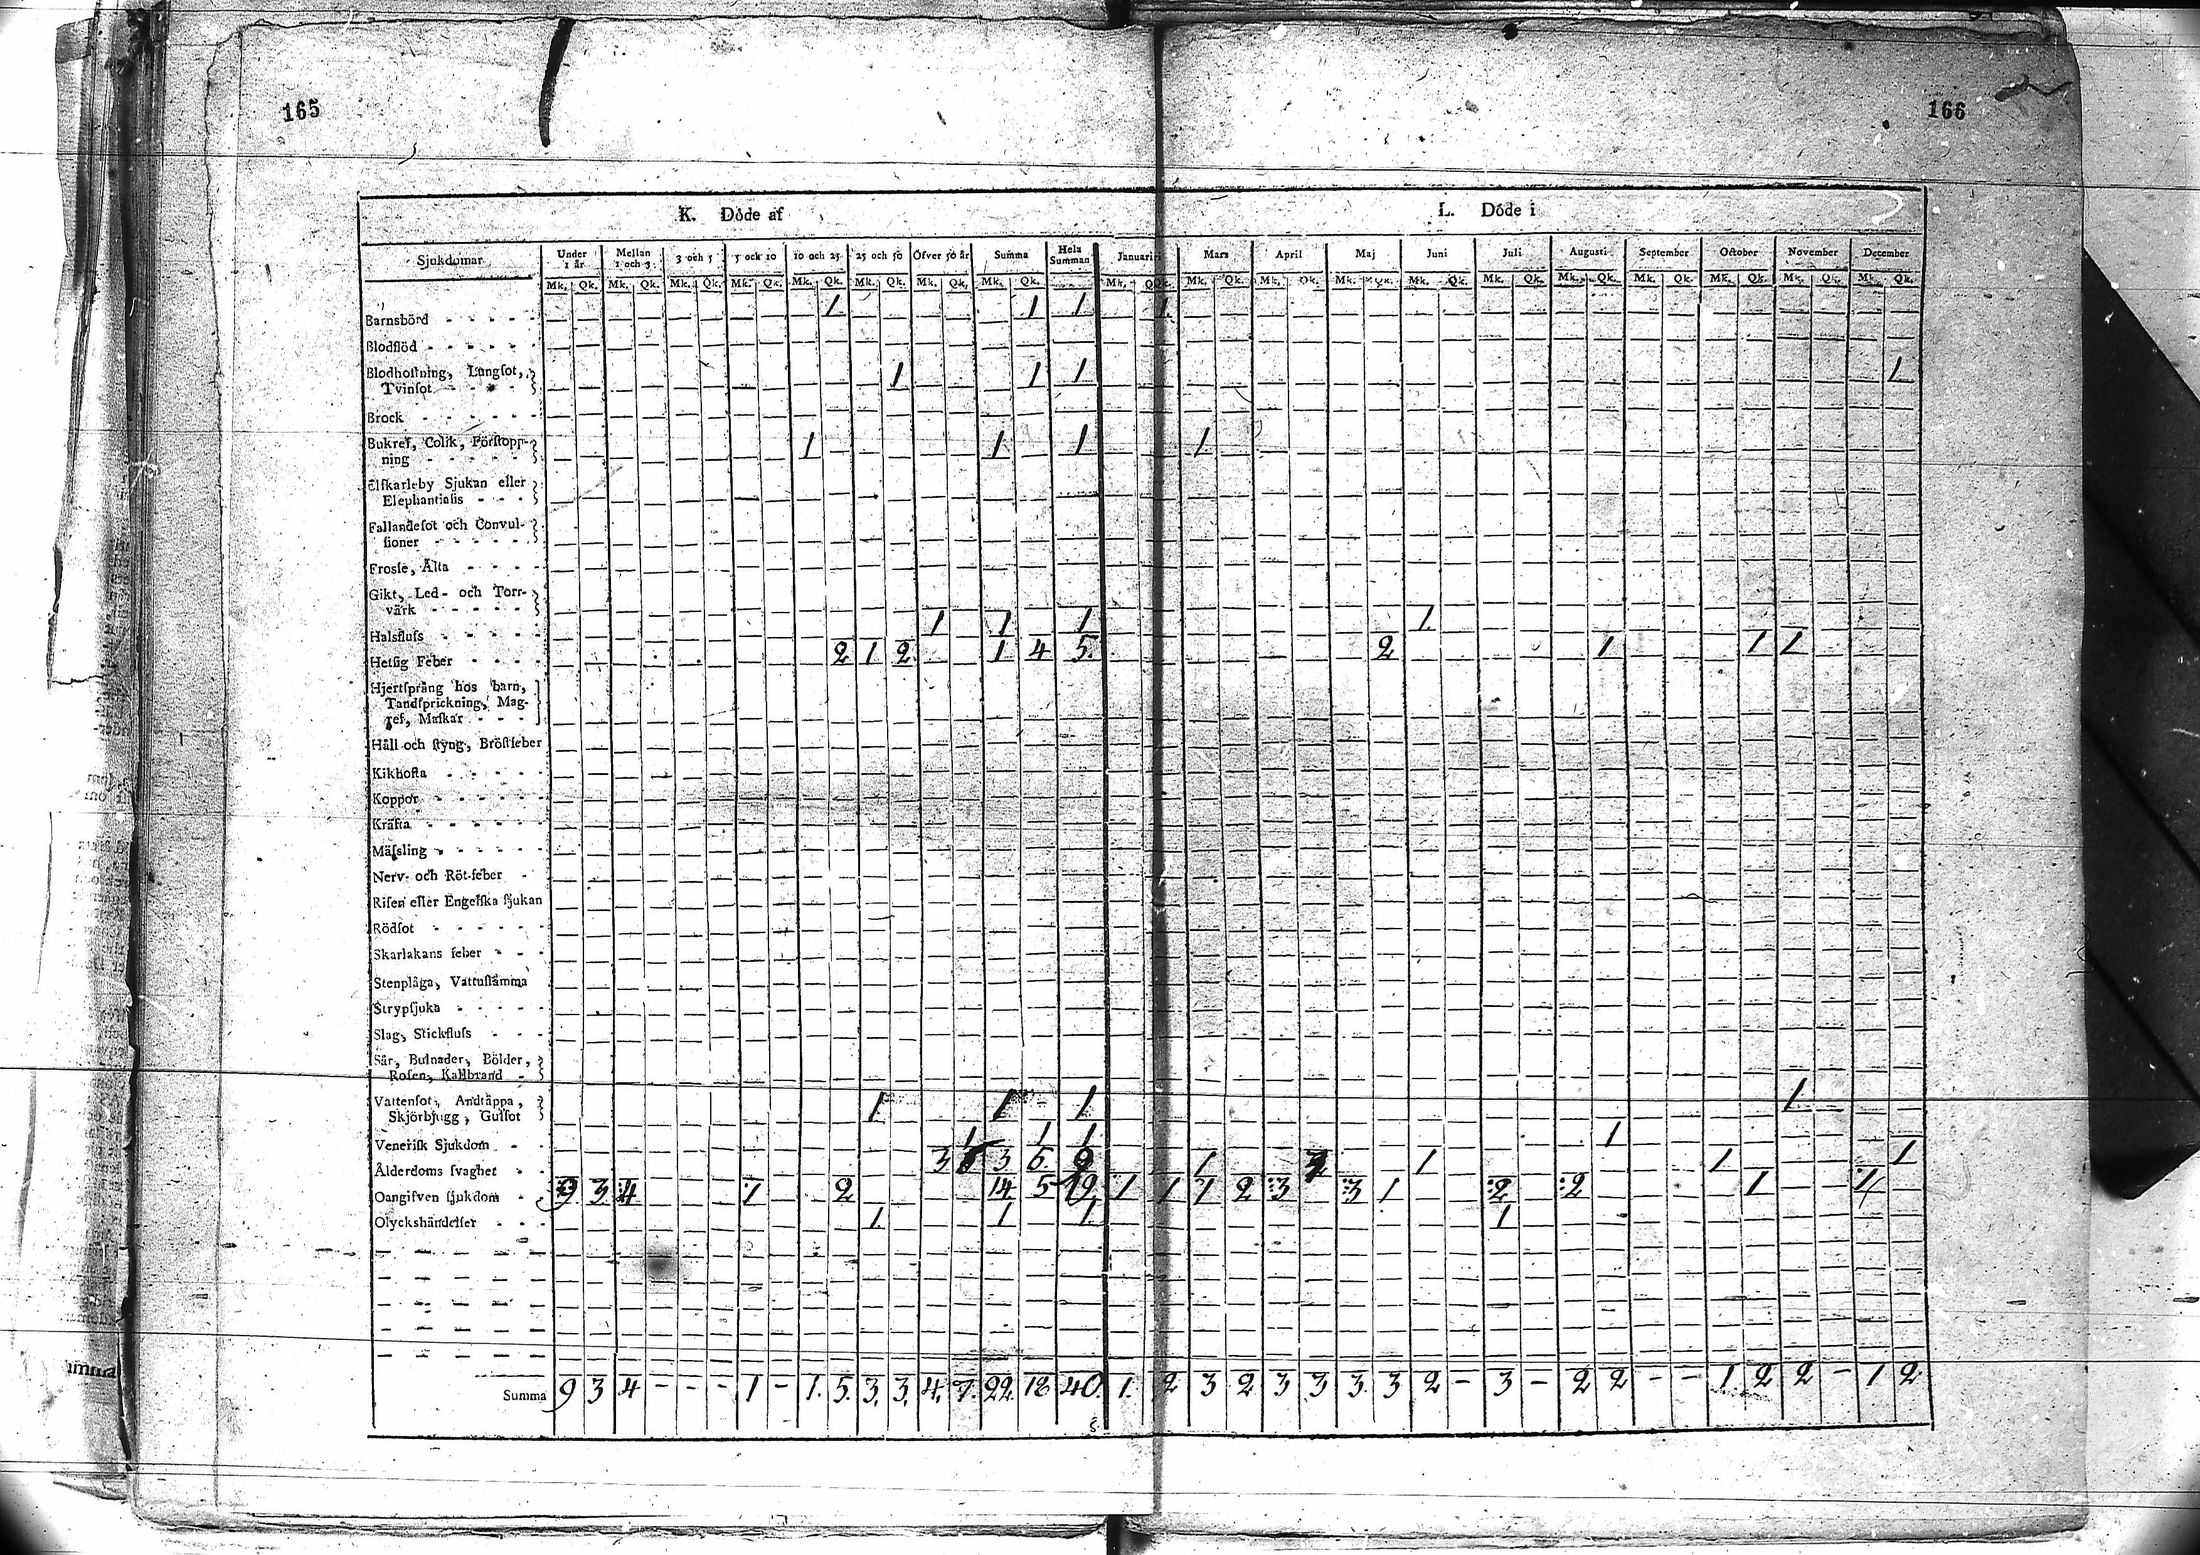 165
166
K. Döde af
L. Döde i
Sjukdomar Under 1 år Mellan 1 och 3 3 och 5 5 och 10 10 och 25 25 och 50 Öfver 50 år Summa Hela Summan Januarii Mars April Maj Juni Juli Augusti September October November December
Mk. Qk. Mk. Qk. Mk. Qk. Mk. Qk. Mk. Qk. Mk. Qk. Mk. Qk. Mk. Qk. Mk. Qk. Mk. Qk. Mk. Qk. Mk. Qk. Mk. Qk. Mk. Qk. Mk. Qk. Mk. Qk. Mk. Qk. Mk. Qk. Mk. Qk.
Barnsbörd 1 1 1 1
Blodflöd
Blodhostning, Lungsot,
Tvinsot 1 1 1 1
Brock
Bukref, Colik, Förstopp-
ning 1 1 1 1
Elfkarleby Sjukan eller
Elephantiasis
Fallandesot och Convul-
sioner
Frossa, Älta
Gikt, Led- och Torr-
värk
Halsfluss 1 1 1 1
Hetsig Feber 2 1 2 1 4 5 2 1 1 1
Hjertsprång hos barn,
Tandsprickning, Mag-
ref, Maskar
Håll och styng, Bröstfeber
Kikhosta
Koppor
Kräfta
Mässling
Nerv- och Röt-feber
Risen eller Engelska sjukan
Rödsot
Skarlakans feber
Stenplåga, Vattustämma
Strypsjuka
Slag, Stickfluss
Sår, Bulnader, Bölder,
Rosen, Kallbrand
Vattensot, Andtäppa,
Skjörbjugg, Gulsot 1 1 1 1
Venerisk Sjukdom 1 1 1 1
Ålderdoms svaghet 3 3 6 9 1 1 1 1
Oangifven sjukdom 9 3 4 1 2 14 5 19 1 1 1 2 3 3 1 2 2 1 1
Olyckshändelser 1 1 1 1
Summa 9 3 4 - - - 1 - 1. 5. 3. 3. 4. 7. 22. 18 40. 1. 2 3 2 3 3 3. 3 2 - 3 - 2 2 - - 1 2 2 - 1 2